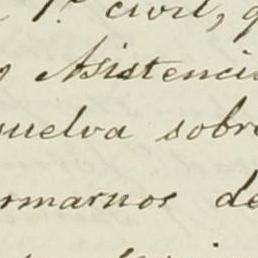 1.º civil, q
Asistenci
uelva sobre
rmarnos de